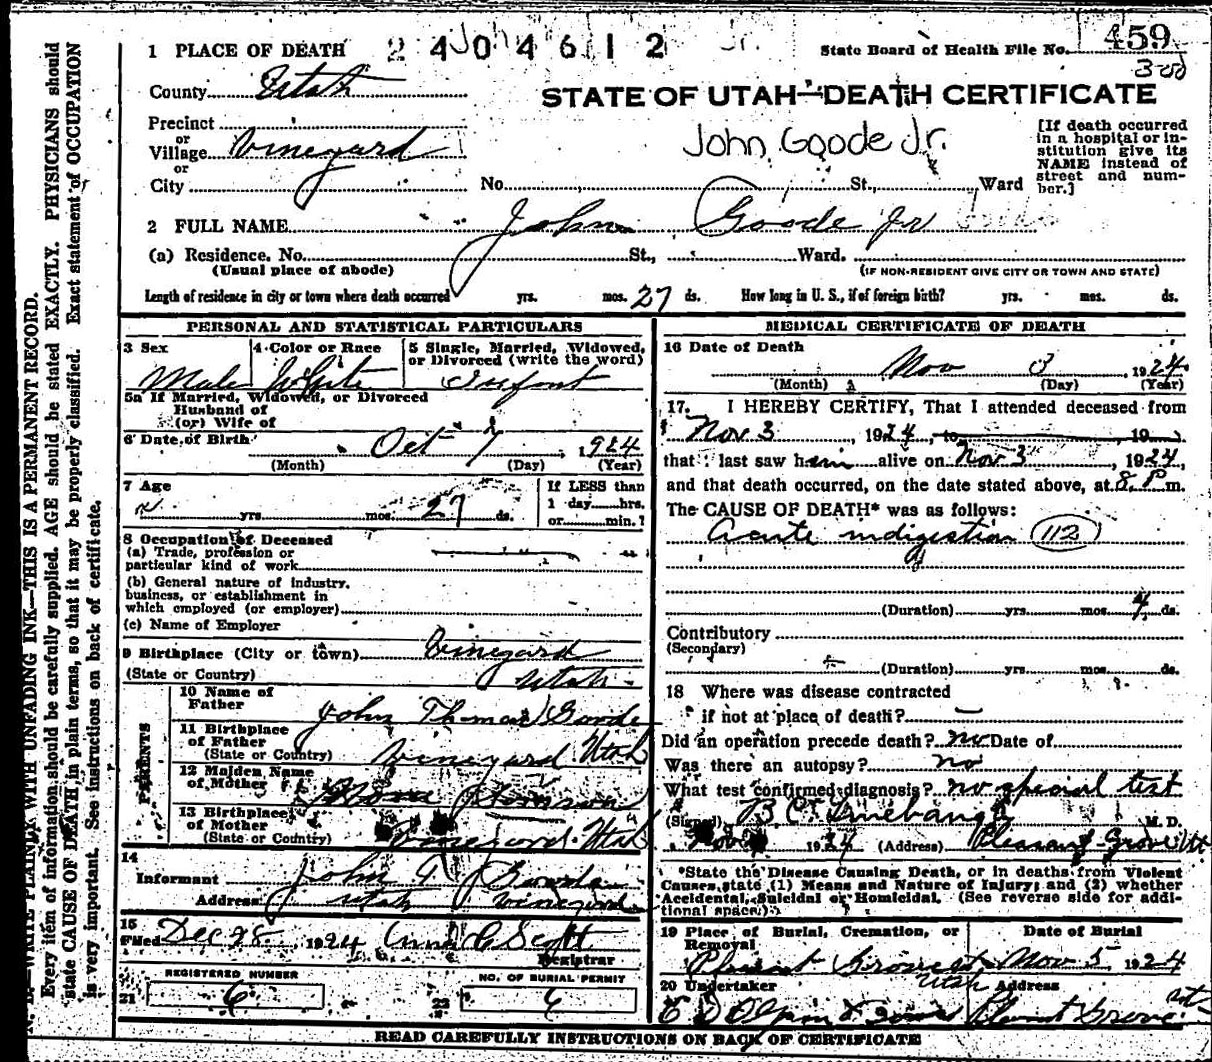 1 PLACE OF DEATH 2404612 Jr. State Board of Health File No. 459
300
County Utah
STATE OF UTAH—DEATH CERTIFICATE
Precinct
or
Village Vineyard
or
City No. St., Ward
John Goode Jr.
[If death occurred
in a hospital or in-
stitution give its
NAME instead of
street and num-
ber.]
2 FULL NAME John Goode Jr
(a) Residence. No. St., Ward.
(Usual place of abode) (IF NON-RESIDENT GIVE CITY OR TOWN AND STATE)
Length of residence in city or town where death occurred yrs. mos. 27 ds. How long in U. S., if of foreign birth? yrs. mos. ds.
PERSONAL AND STATISTICAL PARTICULARS
3 Sex 4 Color or Race 5 Single, Married, Widowed,
or Divorced (write the word)
Male White Infant
5a If Married, Widowed, or Divorced
Husband of
(or) Wife of
6 Date of Birth Oct 7 1924
(Month) (Day) (Year)
7 Age If LESS than
1 day hrs.
yrs. mos. 27 ds. or min.?
8 Occupation of Deceased
(a) Trade, profession or
particular kind of work
(b) General nature of industry,
business, or establishment in
which employed (or employer)
(c) Name of Employer
9 Birthplace (City or town) Vineyard
(State or Country) Utah.
PARENTS
10 Name of
Father John Thomas Goode
11 Birthplace
of Father
(State or Country) Vineyard Utah
12 Maiden Name
of Mother
13 Birthplace
of Mother
(State or Country) Vineyard Utah
14
Informant John T.
Address Utah Vineyard
15
Filed Dec 28 1924 Anna C Scott
Registrar
REGISTERED NUMBER NO. OF BURIAL PERMIT
21 6 22 6
MEDICAL CERTIFICATE OF DEATH
16 Date of Death
Nov 3 1924
(Month) (Day) (Year)
17. I HEREBY CERTIFY, That I attended deceased from
Nov 3, 1924, to 19
that I last saw him alive on Nov 3, 1924,
and that death occurred, on the date stated above, at 8 P m.
The CAUSE OF DEATH* was as follows:
Acute indigestion 112
(Duration) yrs. mos. 4 ds.
Contributory
(Secondary)
(Duration) yrs. mos. ds.
18 Where was disease contracted
if not at place of death? —
Did an operation precede death? no Date of
Was there an autopsy? no
What test confirmed diagnosis? no special test
(Signed) B C Linebaugh M. D.
1924 (Address) Pleasant Grove Ut
*State the Disease Causing Death, or in deaths from Violent
Causes, state (1) Means and Nature of Injury; and (2) whether
Accidental, Suicidal or Homicidal. (See reverse side for addi-
tional space.)
19 Place of Burial, Cremation, or Date of Burial
Removal
Pleasant Grove Nov 5 1924
20 Undertaker Utah Address
Grove
READ CAREFULLY INSTRUCTIONS ON BACK OF CERTIFICATE
N. B.—WRITE PLAINLY WITH UNFADING INK—THIS IS A PERMANENT RECORD.
Every item of information should be carefully supplied. AGE should be stated EXACTLY. PHYSICIANS should
state CAUSE OF DEATH in plain terms, so that it may be properly classified. Exact statement of OCCUPATION
is very important. See instructions on back of certificate.